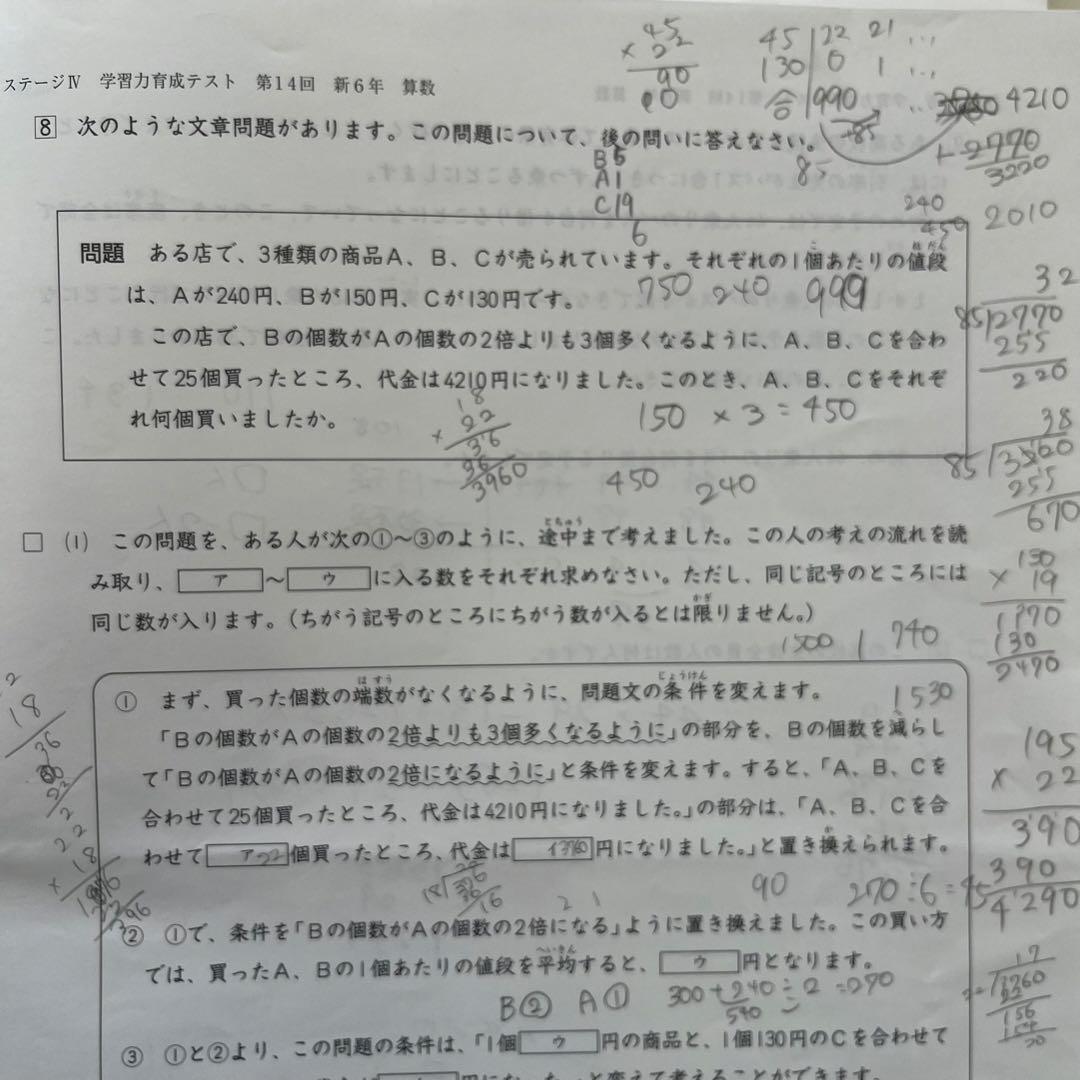 ステージⅣ 学習力育成テスト 第14回 新6年 算数
8 次のような文章問題があります。この問題について、後の問いに答えなさい。
問題 ある店で、3種類の商品A、B、Cが売られています。それぞれの1個あたりの値段
は、Aが240円、Bが150円、Cが130円です。
この店で、Bの個数がAの個数の2倍よりも3個多くなるように、A、B、Cを合わ
せて25個買ったところ、代金は4210円になりました。このとき、A、B、Cをそれぞ
れ何個買いましたか。
750 240 999
150 × 3 = 450
450 240
□ (1) この問題を、ある人が次の①~③のように、途中まで考えました。この人の考えの流れを読
み取り、ア~ウに入る数をそれぞれ求めなさい。ただし、同じ記号のところには
同じ数が入ります。(ちがう記号のところにちがう数が入るとは限りません。)
1500 1 740
① まず、買った個数の端数がなくなるように、問題文の条件を変えます。
1530
「Bの個数がAの個数の2倍よりも3個多くなるように」の部分を、Bの個数を減らし
て「Bの個数がAの個数の2倍になるように」と条件を変えます。すると、「A、B、Cを
合わせて25個買ったところ、代金は4210円になりました。」の部分は、「A、B、Cを合
わせてア個買ったところ、代金はイ円になりました。」と置き換えられます。
90 270÷6=45
② ①で、条件を「Bの個数がAの個数の2倍になる」ように置き換えました。この買い方
では、買ったA、Bの1個あたりの値段を平均すると、ウ円となります。
B② A① 300+240÷2=270
540
③ ①と②より、この問題の条件は、「1個ウ円の商品と、1個130円のCを合わせて
45
× 22
90
45 22 21 ...
130 0 1 ...
合 990 ...
+85
85
4210
2770
3220
240
450 2010
B 5
A 1
C 19
6
32
85 2770
255
220
38
85
255
670
130
× 19
1170
130
2470
195
× 22
390
390
4290
18
22
36
36
3960
17